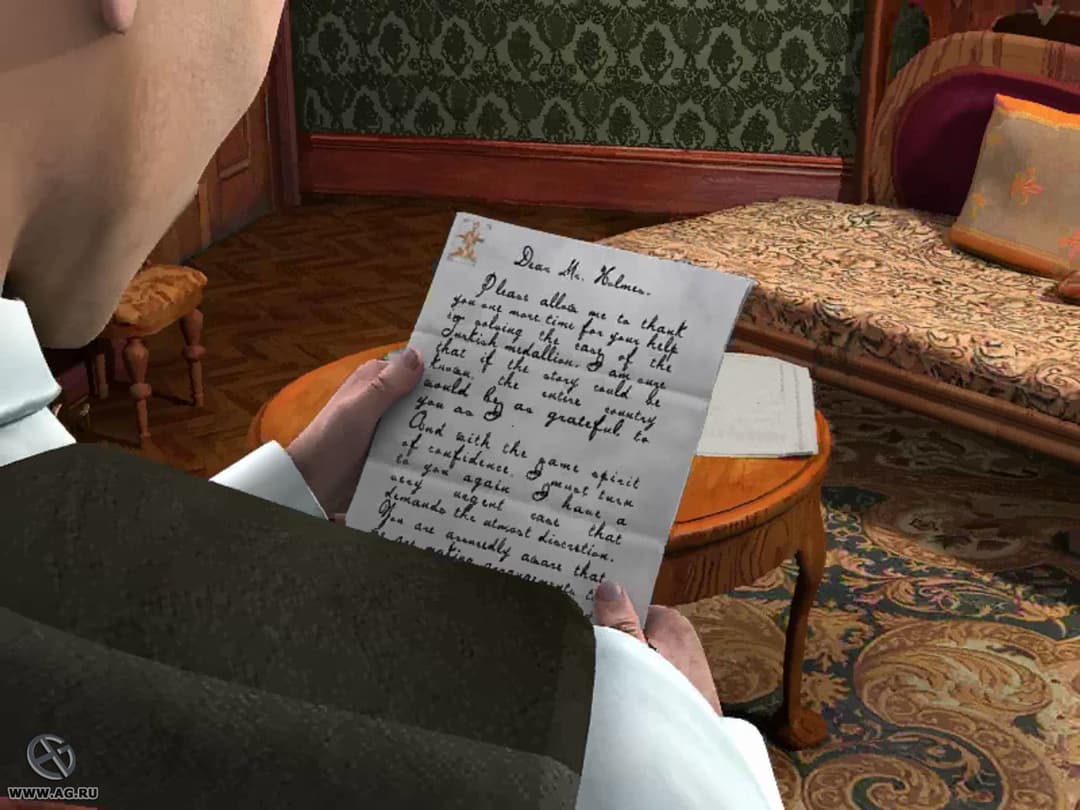 Dear Mr. Holmes.
Please allow me to thank
you one more time for your help
in solving the case of the
Turkish medallion. I am sure
that if the story could be
known, the entire country
would be as grateful to
you as I.
And with the same spirit
of confidence, I must turn
to you again. I have a
very urgent case that
demands the utmost discretion.
You are assuredly aware that
are making arrangements
WWW.AG.RU